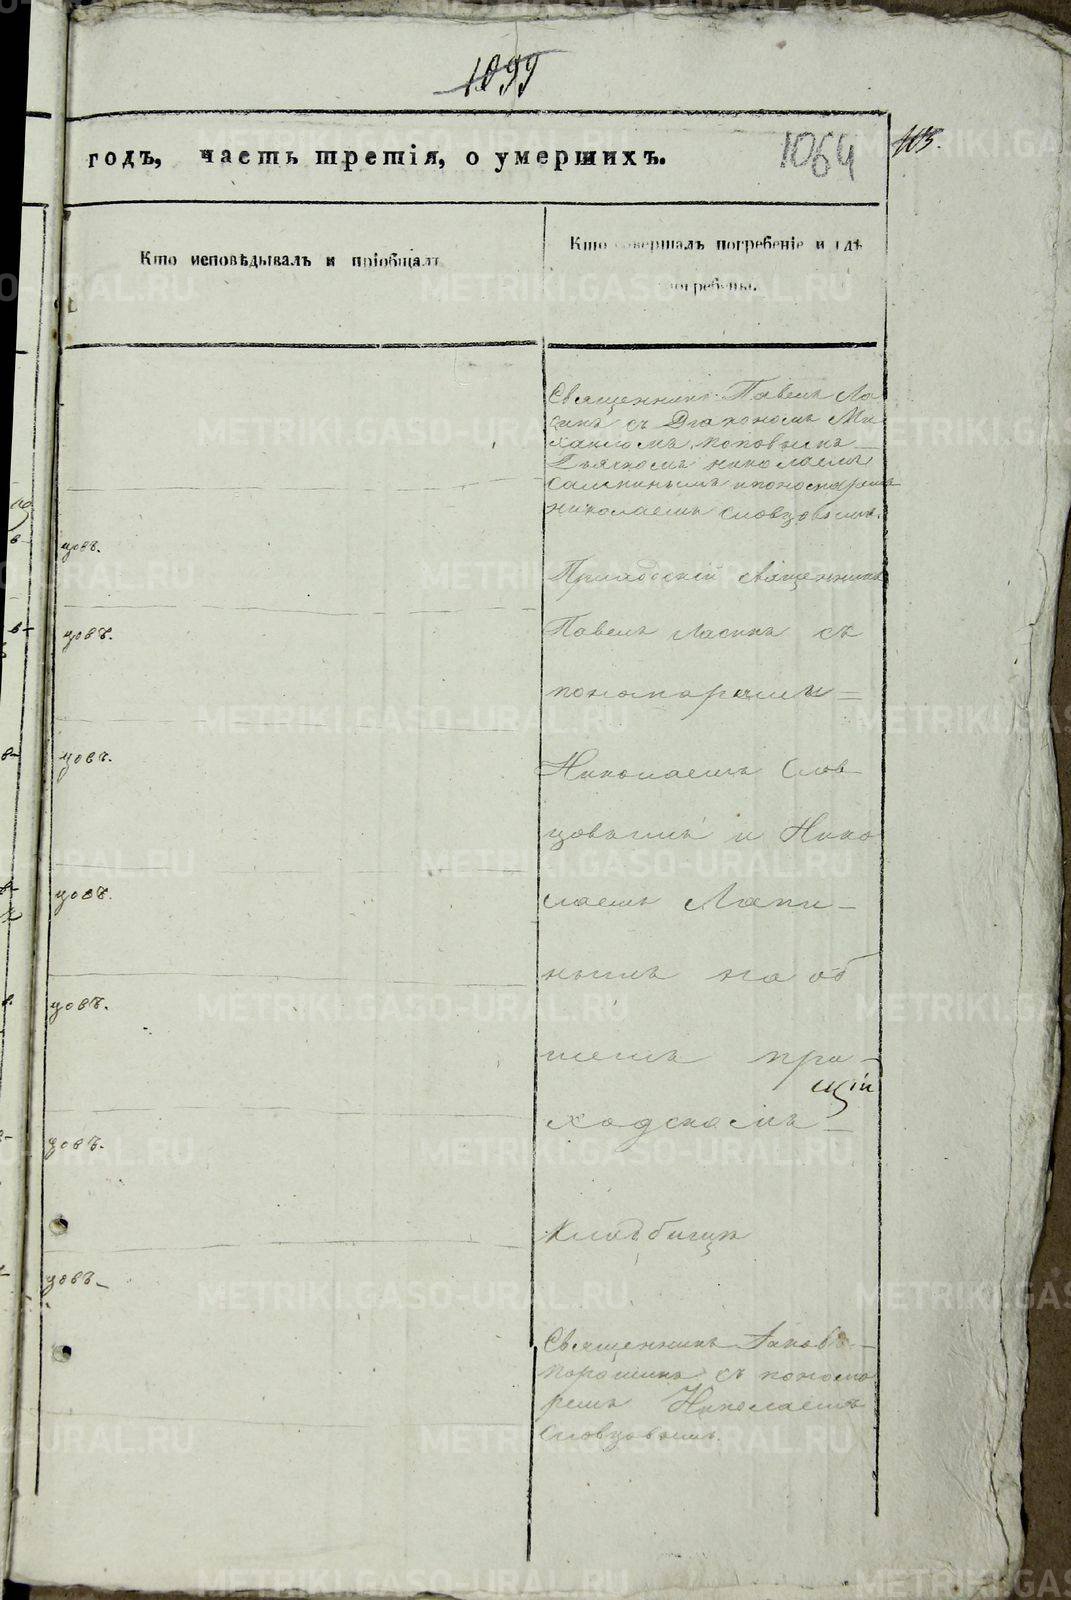 1099
годъ, часть третія, о умершихъ.
1064
113.
Кто исповѣдывалъ и пріобщалъ
Кто совершалъ погребеніе и гдѣ
погребены.
Священникъ Павелъ Ла
пинъ съ Діакономъ Ми
хаиломъ Поповымъ
Дьячкомъ Николаемъ
и пономаремъ
Николаемъ Словцовымъ.
цовъ.
Приходскій священникъ
цовъ.
Павелъ Лапинъ съ
пономарями
цовъ.
Николаемъ Слов
цовымъ и Нико
цовъ.
лаемъ Лапи
нымъ на об
цовъ.
щемъ при
щій
ходскомъ
цовъ.
кладбищѣ
цовъ
Священникъ Іаковъ
съ понома
ремъ Николаемъ
Словцовымъ.
METRIKI.GASO-URAL.RU